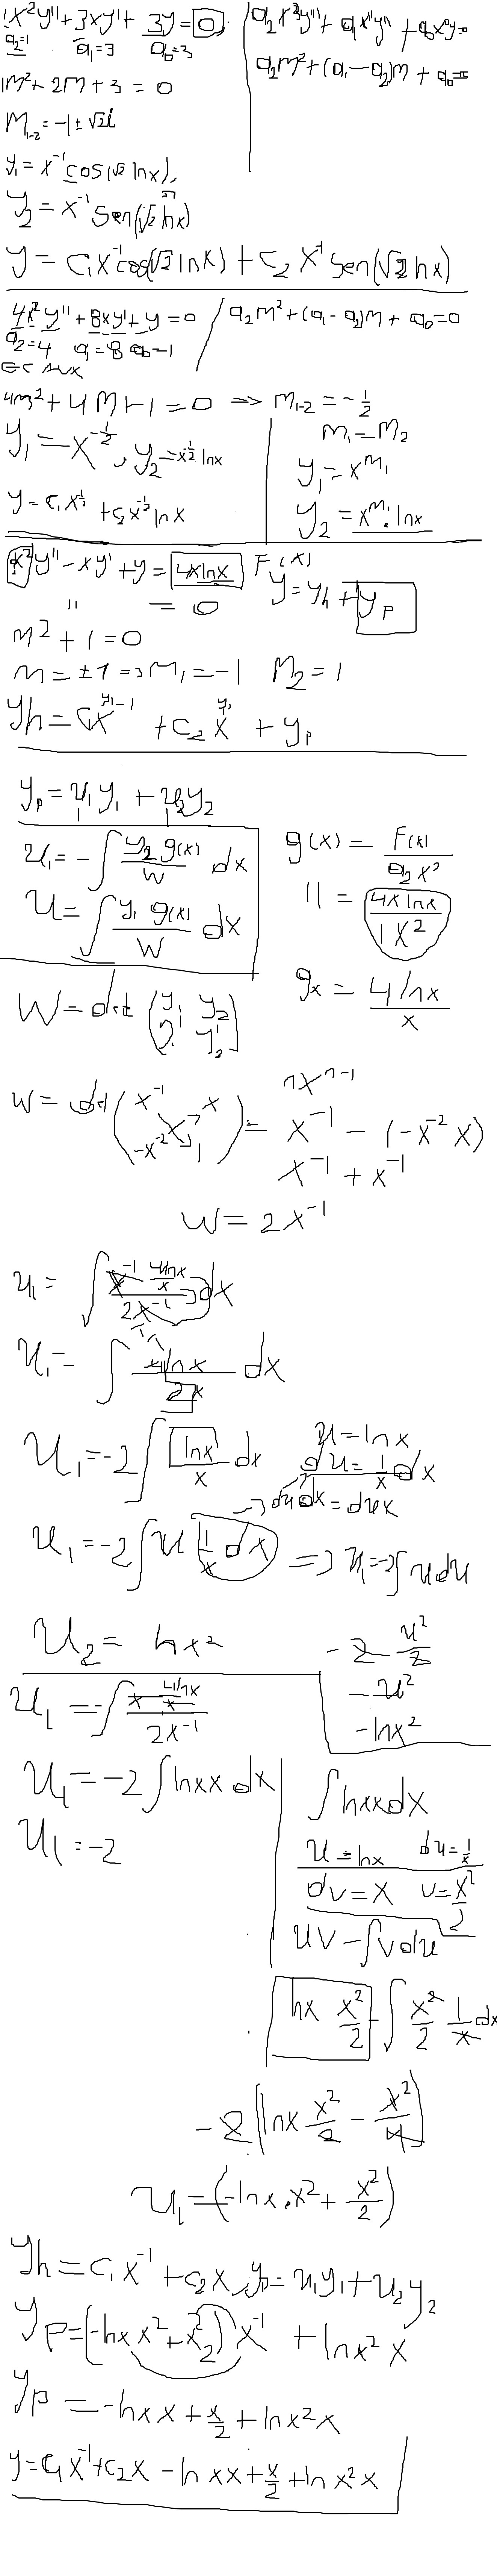 1x²y''+3xy'+3y=0
a₂=1 a₁=3 a₀=3
a₂x²y''+a₁x'y'+a₀x⁰y=0
a₂m²+(a₁-a₂)m+a₀=0
1m²+2m+3=0
m₁₋₂=-1±√2i
y₁=x⁻¹cos(√2 lnx),
y₂=x⁻¹sen(√2 lnx)
y=c₁x⁻¹cos(√2 lnx)+c₂x⁻¹sen(√2 lnx)
4x²y''+8xy'+y=0 / a₂m²+(a₁-a₂)m+a₀=0
a₂=4 a₁=8 a₀=1
EC AUX
4m²+4m+1=0 => m₁₋₂=-1/2
y₁=x^(-1/2), y₂=x^(-1/2) lnx
m₁=m₂
y₁=x^m₁
y=c₁x^(-1/2)+c₂x^(-1/2) lnx
y₂=x^m₁·lnx
x²y''-xy'+y=4xlnx F(x)
'' =0
y=yh+yp
m²+1=0
m=±1=>m₁=-1 m₂=1
yh=c₁x⁻¹+c₂x+yp
yp=u₁y₁+u₂y₂
u₁=-∫ y₂g(x)/W dx
u=∫ y₁g(x)/W dx
g(x)=F(x)/a₂x²
11=4xlnx/1x²
gx=4lnx/x
W=det(y₁ y₂
y₁' y₂')
nxⁿ⁻¹
w=det(x⁻¹ x
-x⁻² 1)=x⁻¹-(-x⁻²x)
x⁻¹+x⁻¹
w=2x⁻¹
u₁=∫ x⁻¹ 4lnx/x / 2x⁻¹ dx
u₁=∫ 4lnx/2x dx
u₁=-2∫ lnx/x dx
u=lnx
du=1/x dx
u₁=-2∫u 1/x dx => u₁=-2∫udu
u₂=lnx²
-2 u²/2
-u²
-lnx²
u₁=-∫ x 4lnx/x / 2x⁻¹
u₁=-2∫lnxx dx
∫lnxxdx
u₁=-2
u=lnx du=1/x
dv=x v=x²/2
uv-∫vdu
lnx x²/2-∫x²/2 1/x dx
-2(lnx x²/2-x²/4)
u₁=(-lnx·x²+x²/2)
yh=c₁x⁻¹+c₂x, yp=u₁y₁+u₂y₂
yp=(-lnx x²+x²/2)x⁻¹+lnx²x
yp=-lnxx+x/2+lnx²x
y=c₁x⁻¹+c₂x-lnxx+x/2+lnx²x